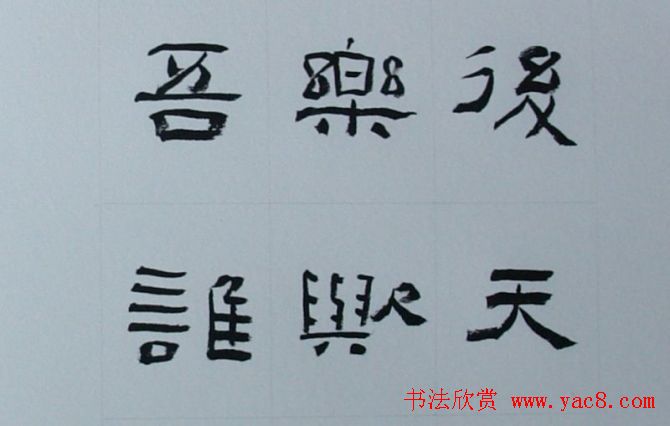 後天
樂歟
吾誰
书法欣赏 www.yac8.com